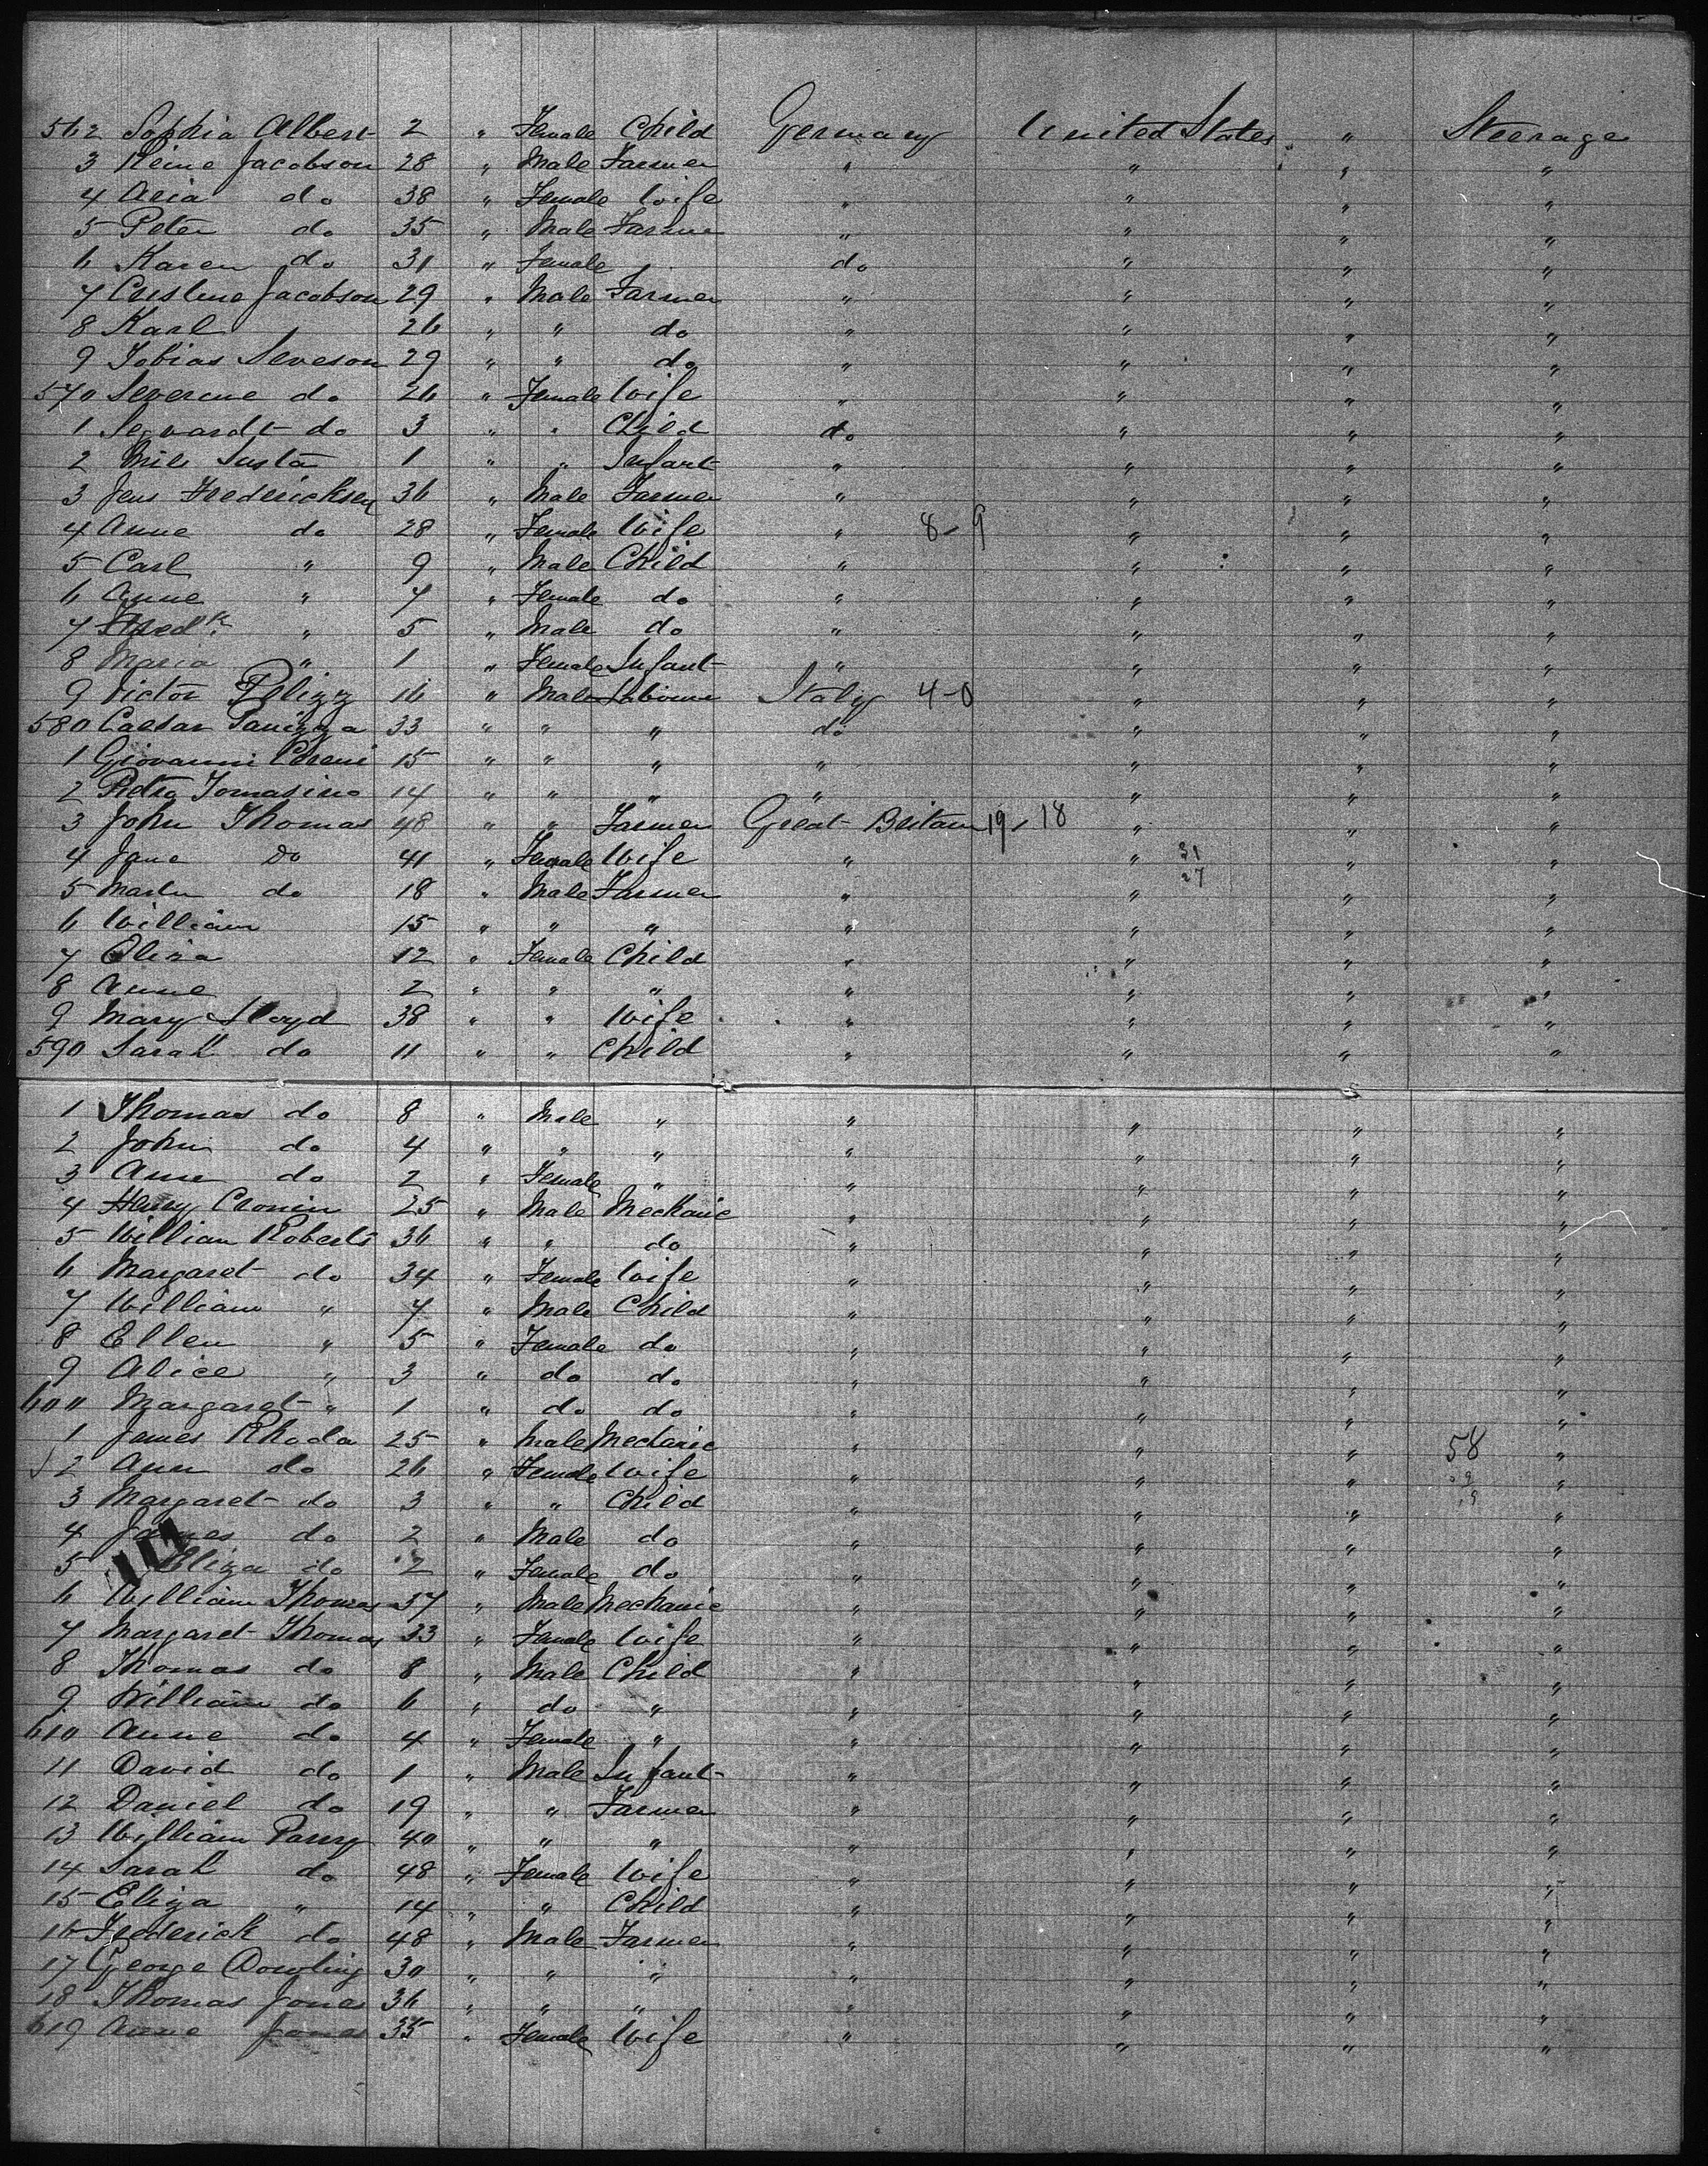 562 Sophia Albert 2 " Female Child Germany United States " Steerage
3 Reine Jacobson 28 " Male Farmer " " " "
4 Aria do 38 " Female Wife " " " "
5 Peter do 35 " Male Farmer " " " "
6 Karen do 31 " Female do " " "
7 Jacobson 29 " Male Farmer " " " "
8 Karl 26 " " do " " " "
9 Tobias Seveson 29 " " do " " " "
570 Severine do 26 " Female Wife " " " "
1 Segvardt do 3 " " Child do " " "
2 1 " " Infant " " " "
3 Jens Fredericksen 36 " Male Farmer " " " "
4 Anne do 28 " Female Wife " 8 - 9 " " "
5 Carl " 9 " Male Child " " " "
6 Anne " 7 " Female do " " " "
7 Fredk " 5 " Male do " " " "
8 Maria " 1 " Female Infant " " " "
9 Victor Pelizz 16 " Male Italy 4-0 " " "
580 Caesar Panizza 33 " " " do " " "
1 Giovanni 15 " " " " " " "
2 Pietro Tomasino 14 " " " " " " "
3 John Thomas 48 " " Farmer Great Britain 19 - 18 " " "
4 Jane Do 41 " Female Wife " " 31 " "
5 Martin do 18 " Male Farmer " " 27 " "
6 William 15 " " " " " " "
7 Eliza 12 " Female Child " " " "
8 Anne 2 " " " " " " "
9 Mary Lloyd 38 " " Wife " " " "
590 Sarah do 11 " " Child " " " "
1 Thomas do 8 " Male " " " " "
2 John do 4 " " " " " " "
3 Anne do 2 " Female " " " " "
4 Henry Cronin 25 " Male Mechanic " " " "
5 William Roberts 36 " " do " " " "
6 Margaret do 34 " Female Wife " " " "
7 William " 7 " Male Child " " " "
8 Ellen " 5 " Female do " " " "
9 Alice " 3 " do do " " " "
600 Margaret " 1 " do do " " " "
1 James Rhoda 25 " Male Mechanic " " " 58 "
2 Ann do 26 " Female Wife " " " "
3 Margaret do 3 " " Child " " " "
4 James do 2 " Male do " " " "
5 Eliza do 2 " Female do " " " "
6 William Thomas 37 " Male Mechanic " " " "
7 Margaret Thomas 33 " Female Wife " " " "
8 Thomas do 8 " Male Child " " " "
9 William do 6 " do " " " " "
610 Anne do 4 " Female " " " " "
11 David do 1 " Male Infant " " " "
12 Daniel do 19 " " Farmer " " " "
13 William Parry 40 " " " " " " "
14 Sarah do 48 " Female Wife " " " "
15 Eliza " 14 " " Child " " " "
16 Frederick do 48 " Male Farmer " " " "
17 George Dowling 30 " " " " " " "
18 Thomas Jones 36 " " " " " " "
619 Anne Jones 35 " Female Wife " " " "